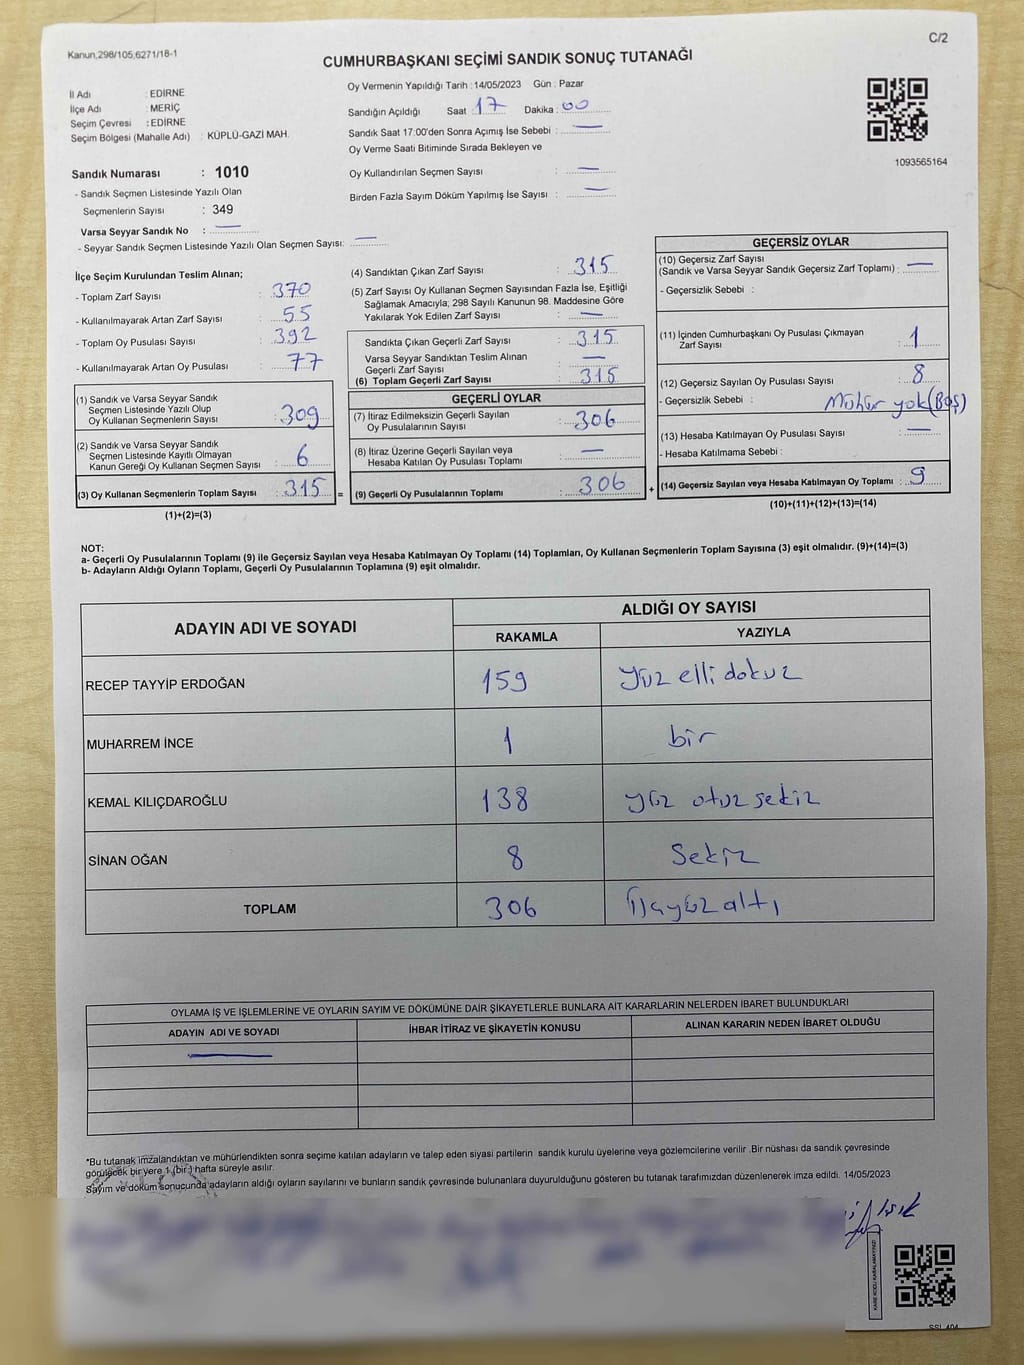 Kanun,298/105,6271/18-1
C/2
CUMHURBAŞKANI SEÇİMİ SANDIK SONUÇ TUTANAĞI
İl Adı : EDİRNE
İlçe Adı : MERİÇ
Seçim Çevresi : EDİRNE
Seçim Bölgesi (Mahalle Adı) : KÜPLÜ-GAZİ MAH.
Sandık Numarası : 1010
- Sandık Seçmen Listesinde Yazılı Olan
Seçmenlerin Sayısı : 349
Varsa Seyyar Sandık No : —
- Seyyar Sandık Seçmen Listesinde Yazılı Olan Seçmen Sayısı: —
Oy Vermenin Yapıldığı Tarih :14/05/2023 Gün : Pazar
Sandığın Açıldığı Saat 17 Dakika : 00
Sandık Saat 17:00'den Sonra Açımış İse Sebebi : —
Oy Verme Saati Bitiminde Sırada Bekleyen ve
Oy Kullandırılan Seçmen Sayısı : —
Birden Fazla Sayım Döküm Yapılmış İse Sayısı : —
1093565164
İlçe Seçim Kurulundan Teslim Alınan;
- Toplam Zarf Sayısı : 370
- Kullanılmayarak Artan Zarf Sayısı : 55
- Toplam Oy Pusulası Sayısı : 392
- Kullanılmayarak Artan Oy Pusulası : 77
(1) Sandık ve Varsa Seyyar Sandık
Seçmen Listesinde Yazılı Olup
Oy Kullanan Seçmenlerin Sayısı : 309
(2) Sandık ve Varsa Seyyar Sandık
Seçmen Listesinde Kayıtlı Olmayan
Kanun Gereği Oy Kullanan Seçmen Sayısı : 6
(3) Oy Kullanan Seçmenlerin Toplam Sayısı : 315 =
(1)+(2)=(3)
(4) Sandıktan Çıkan Zarf Sayısı : 315
(5) Zarf Sayısı Oy Kullanan Seçmen Sayısından Fazla İse, Eşitliği
Sağlamak Amacıyla; 298 Sayılı Kanunun 98. Maddesine Göre
Yakılarak Yok Edilen Zarf Sayısı : —
Sandıkta Çıkan Geçerli Zarf Sayısı : 315
Varsa Seyyar Sandıktan Teslim Alınan
Geçerli Zarf Sayısı : —
(6) Toplam Geçerli Zarf Sayısı : 315
GEÇERLİ OYLAR
(7) İtiraz Edilmeksizin Geçerli Sayılan
Oy Pusulalarının Sayısı : 306
(8) İtiraz Üzerine Geçerli Sayılan veya
Hesaba Katılan Oy Pusulası Toplamı : —
(9) Geçerli Oy Pusulalarının Toplamı : 306 +
GEÇERSİZ OYLAR
(10) Geçersiz Zarf Sayısı
(Sandık ve Varsa Seyyar Sandık Geçersiz Zarf Toplamı) : —
- Geçersizlik Sebebi :
(11) İçinden Cumhurbaşkanı Oy Pusulası Çıkmayan
Zarf Sayısı : 1
(12) Geçersiz Sayılan Oy Pusulası Sayısı : 8
- Geçersizlik Sebebi : Mühür yok(Boş)
(13) Hesaba Katılmayan Oy Pusulası Sayısı : —
- Hesaba Katılmama Sebebi :
(14) Geçersiz Sayılan veya Hesaba Katılmayan Oy Toplamı : 9
(10)+(11)+(12)+(13)=(14)
NOT:
a- Geçerli Oy Pusulalarının Toplamı (9) ile Geçersiz Sayılan veya Hesaba Katılmayan Oy Toplamı (14) Toplamları, Oy Kullanan Seçmenlerin Toplam Sayısına (3) eşit olmalıdır. (9)+(14)=(3)
b- Adayların Aldığı Oyların Toplamı, Geçerli Oy Pusulalarının Toplamına (9) eşit olmalıdır.
ADAYIN ADI VE SOYADI
ALDIĞI OY SAYISI
RAKAMLA YAZIYLA
RECEP TAYYİP ERDOĞAN 159 Yüz elli dokuz
MUHARREM İNCE 1 bir
KEMAL KILIÇDAROĞLU 138 yüz otuz sekiz
SİNAN OĞAN 8 Sekiz
TOPLAM 306 Üçyüz altı
OYLAMA İŞ VE İŞLEMLERİNE VE OYLARIN SAYIM VE DÖKÜMÜNE DAİR ŞİKAYETLERLE BUNLARA AİT KARARLARIN NELERDEN İBARET BULUNDUKLARI
ADAYIN ADI VE SOYADI İHBAR İTİRAZ VE ŞİKAYETİN KONUSU ALINAN KARARIN NEDEN İBARET OLDUĞU
—
*Bu tutanak imzalandıktan ve mühürlendikten sonra seçime katılan adayların ve talep eden siyasi partilerin sandık kurulu üyelerine veya gözlemcilerine verilir .Bir nüshası da sandık çevresinde
görülecek bir yere 1 (bir ) hafta süreyle asılır.
Sayım ve döküm sonucunda adayların aldığı oyların sayılarını ve bunların sandık çevresinde bulunanlara duyurulduğunu gösteren bu tutanak tarafımızdan düzenlenerek imza edildi. 14/05/2023